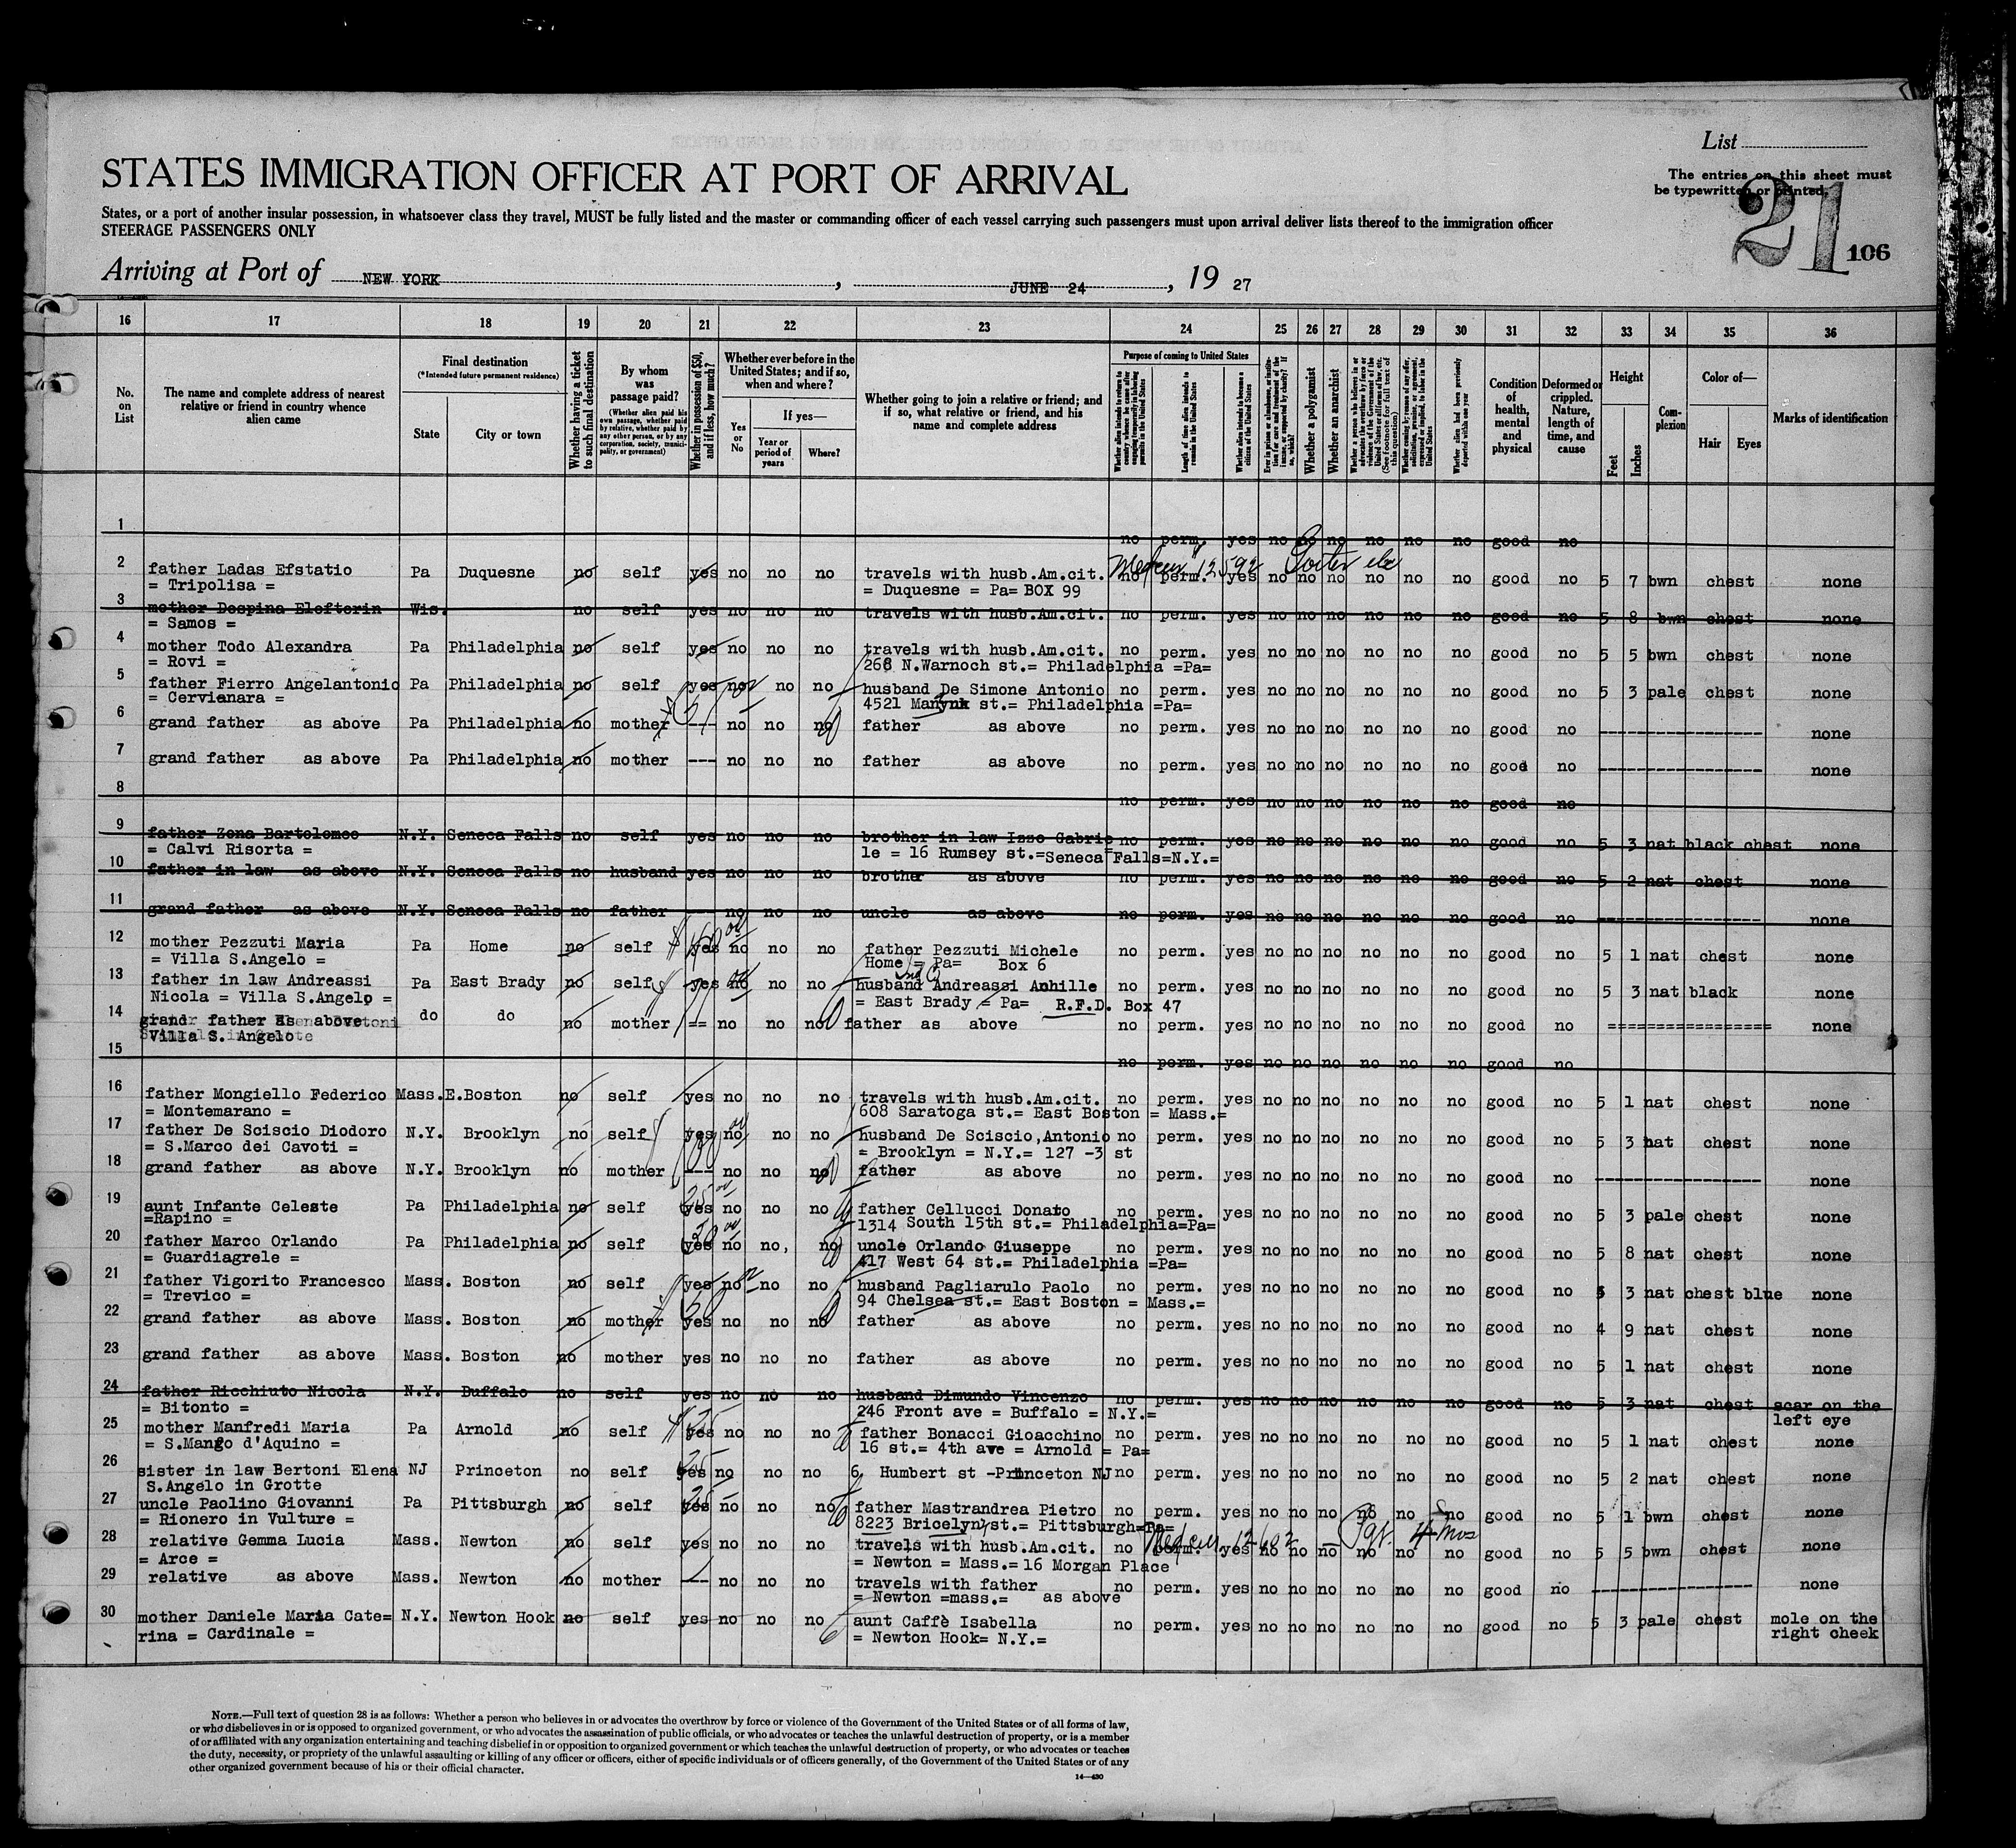 List
The entries on this sheet must
be typewritten or printed.
21
106
STATES IMMIGRATION OFFICER AT PORT OF ARRIVAL
States, or a port of another insular possession, in whatsoever class they travel, MUST be fully listed and the master or commanding officer of each vessel carrying such passengers must upon arrival deliver lists thereof to the immigration officer
STEERAGE PASSENGERS ONLY
Arriving at Port of NEW YORK, JUNE 24, 19 27
16 17 18 19 20 21 22 23 24 25 26 27 28 29 30 31 32 33 34 35 36
No. on List
The name and complete address of nearest relative or friend in country whence alien came
Final destination
(*Intended future permanent residence)
State
City or town
Whether having a ticket to such final destination
By whom was passage paid?
(Whether alien paid his own passage, whether paid by relative, whether paid by any other person, or by any corporation, society, municipality, or government)
Whether in possession of $50, and if less, how much?
Whether ever before in the United States; and if so, when and where?
Yes or No
If yes—
Year or period of years
Where?
Whether going to join a relative or friend; and if so, what relative or friend, and his name and complete address
Purpose of coming to United States
Length of time alien intends to remain in the United States
Whether alien intends to become a citizen of the United States
Whether a polygamist
Whether an anarchist
Condition of health, mental and physical
Deformed or crippled. Nature, length of time, and cause
Height
Feet
Inches
Complexion
Color of—
Hair
Eyes
Marks of identification
1 no perm. yes no no no no no no good no
2 father Ladas Efstatio Pa Duquesne no self yes no no no travels with husb.Am.cit. no perm. yes no no no no no no good no 5 7 bwn chest none
= Tripolisa = = Duquesne = Pa= BOX 99
3 mother Despina Elefterin Wis. no self yes no no no travels with husb.Am.cit. no perm. yes no no no no no no good no 5 8 bwn chest none
= Samos =
4 mother Todo Alexandra Pa Philadelphia no self yes no no no travels with husb.Am.cit. no perm. yes no no no no no no good no 5 5 bwn chest none
= Rovi = 268 N.Warnoch st.= Philadelphia =Pa=
5 father Fierro Angelantonio Pa Philadelphia no self yes no no no husband De Simone Antonio no perm. yes no no no no no no good no 5 3 pale chest none
= Cervienara = 4521 st.= Philadelphia =Pa=
6 grand father as above Pa Philadelphia no mother --- no no no father as above no perm. yes no no no no no no good no ----------------- none
7 grand father as above Pa Philadelphia no mother --- no no no father as above no perm. yes no no no no no no good no ----------------- none
8 no perm. yes no no no no no no good no
9 father Zona Bartolomeo N.Y. Seneca Falls no self yes no no no brother in law Izzo Gabrie no perm. yes no no no no no no good no 5 3 nat black chest none
= Calvi Risorta = le = 16 Rumsey st.=Seneca Falls=N.Y.=
10 father in law as above N.Y. Seneca Falls no husband yes no no no brother as above no perm. yes no no no no no no good no 5 2 nat chest none
11 grand father as above N.Y. Seneca Falls no father --- no no no uncle as above no perm. yes no no no no no no good no ----------------- none
12 mother Pezzuti Maria Pa Home no self yes no no no father Pezzuti Michele no perm. yes no no no no no no good no 5 1 nat chest none
= Villa S.Angelo = Home = Pa= Box 6
13 father in law Andreassi Pa East Brady no self yes no no no husband Andreassi Achille no perm. yes no no no no no no good no 5 3 nat black none
Nicola = Villa S.Angelo = = East Brady = Pa= R.F.D. Box 47
14 grand father as above do do no mother == no no no father as above no perm. yes no no no no no no good no ================= none
Villa S. Angelo
15 no perm. yes no no no no no no good no
16 father Mongiello Federico Mass. E.Boston no self yes no no no travels with husb.Am.cit. no perm. yes no no no no no no good no 5 1 nat chest none
= Montemarano = 608 Saratoga st.= East Boston = Mass.=
17 father De Sciscio Diodoro N.Y. Brooklyn no self yes no no no husband De Sciscio,Antonio no perm. yes no no no no no no good no 5 3 nat chest none
= S.Marco dei Cavoti = = Brooklyn = N.Y.= 127 -3 st
18 grand father as above N.Y. Brooklyn no mother --- no no no father as above no perm. yes no no no no no no good no ----------------- none
19 aunt Infante Celeste Pa Philadelphia no self yes no no no father Cellucci Donato no perm. yes no no no no no no good no 5 3 pale chest none
=Rapino = 1314 South 15th st.= Philadelphia=Pa=
20 father Marco Orlando Pa Philadelphia no self yes no no, no uncle Orlando Giuseppe no perm. yes no no no no no no good no 5 8 nat chest none
= Guardiagrele = 417 West 64 st.= Philadelphia =Pa=
21 father Vigorito Francesco Mass. Boston no self yes no no no husband Pagliarulo Paolo no perm. yes no no no no no no good no 5 3 nat chest blue none
= Trevico = 94 Chelsea st.= East Boston = Mass.=
22 grand father as above Mass. Boston no mother yes no no no father as above no perm. yes no no no no no no good no 4 9 nat chest none
23 grand father as above Mass. Boston no mother yes no no no father as above no perm. yes no no no no no no good no 5 1 nat chest none
24 father Ricchiuto Nicola N.Y. Buffalo no self yes no no no husband Dimundo Vincenzo no perm. yes no no no no no no good no 5 3 nat chest scar on the
= Bitonto = 246 Front ave = Buffalo = N.Y.= left eye
25 mother Manfredi Maria Pa Arnold no self yes no no no father Bonacci Gioacchino no perm. yes no no no no no no good no 5 1 nat chest none
= S.Mango d'Aquino = 16 st.= 4th ave = Arnold = Pa=
26 sister in law Bertoni Elena NJ Princeton no self yes no no no 6 Humbert st -Princeton NJ no perm. yes no no no no no no good no 5 2 nat chest none
S.Angelo in Grotte
27 uncle Paolino Giovanni Pa Pittsburgh no self yes no no no father Mastrandrea Pietro no perm. yes no no no no no no good no 5 1 bwn chest none
= Rionero in Vulture = 8223 Bricelyn st.= Pittsburgh=Pa=
28 relative Gemma Lucia Mass. Newton no self yes no no no travels with husb.Am.cit. no perm. yes no no no no no no good no 5 5 bwn chest none
= Arce = = Newton = Mass.= 16 Morgan Place
29 relative as above Mass. Newton no mother --- no no no travels with father no perm. yes no no no no no no good no ----------------- none
= Newton =mass.= as above
30 mother Daniele Maria Cate= N.Y. Newton Hook no self yes no no no aunt Caffè Isabella no perm. yes no no no no no no good no 5 3 pale chest mole on the
rina = Cardinale = = Newton Hook= N.Y.= right cheek
NOTE.—Full text of question 28 is as follows: Whether a person who believes in or advocates the overthrow by force or violence of the Government of the United States or of all forms of law,
or who disbelieves in or is opposed to organized government, or who advocates the assassination of public officials, or who advocates or teaches the unlawful destruction of property, or is a member
of or affiliated with any organization entertaining and teaching disbelief in or opposition to organized government or which teaches the unlawful destruction of property, or who advocates or teaches
the duty, necessity, or propriety of the unlawful assaulting or killing of any officer or officers, either of specific individuals or of officers generally, of the Government of the United States or of any
other organized government because of his or their official character.
14—430